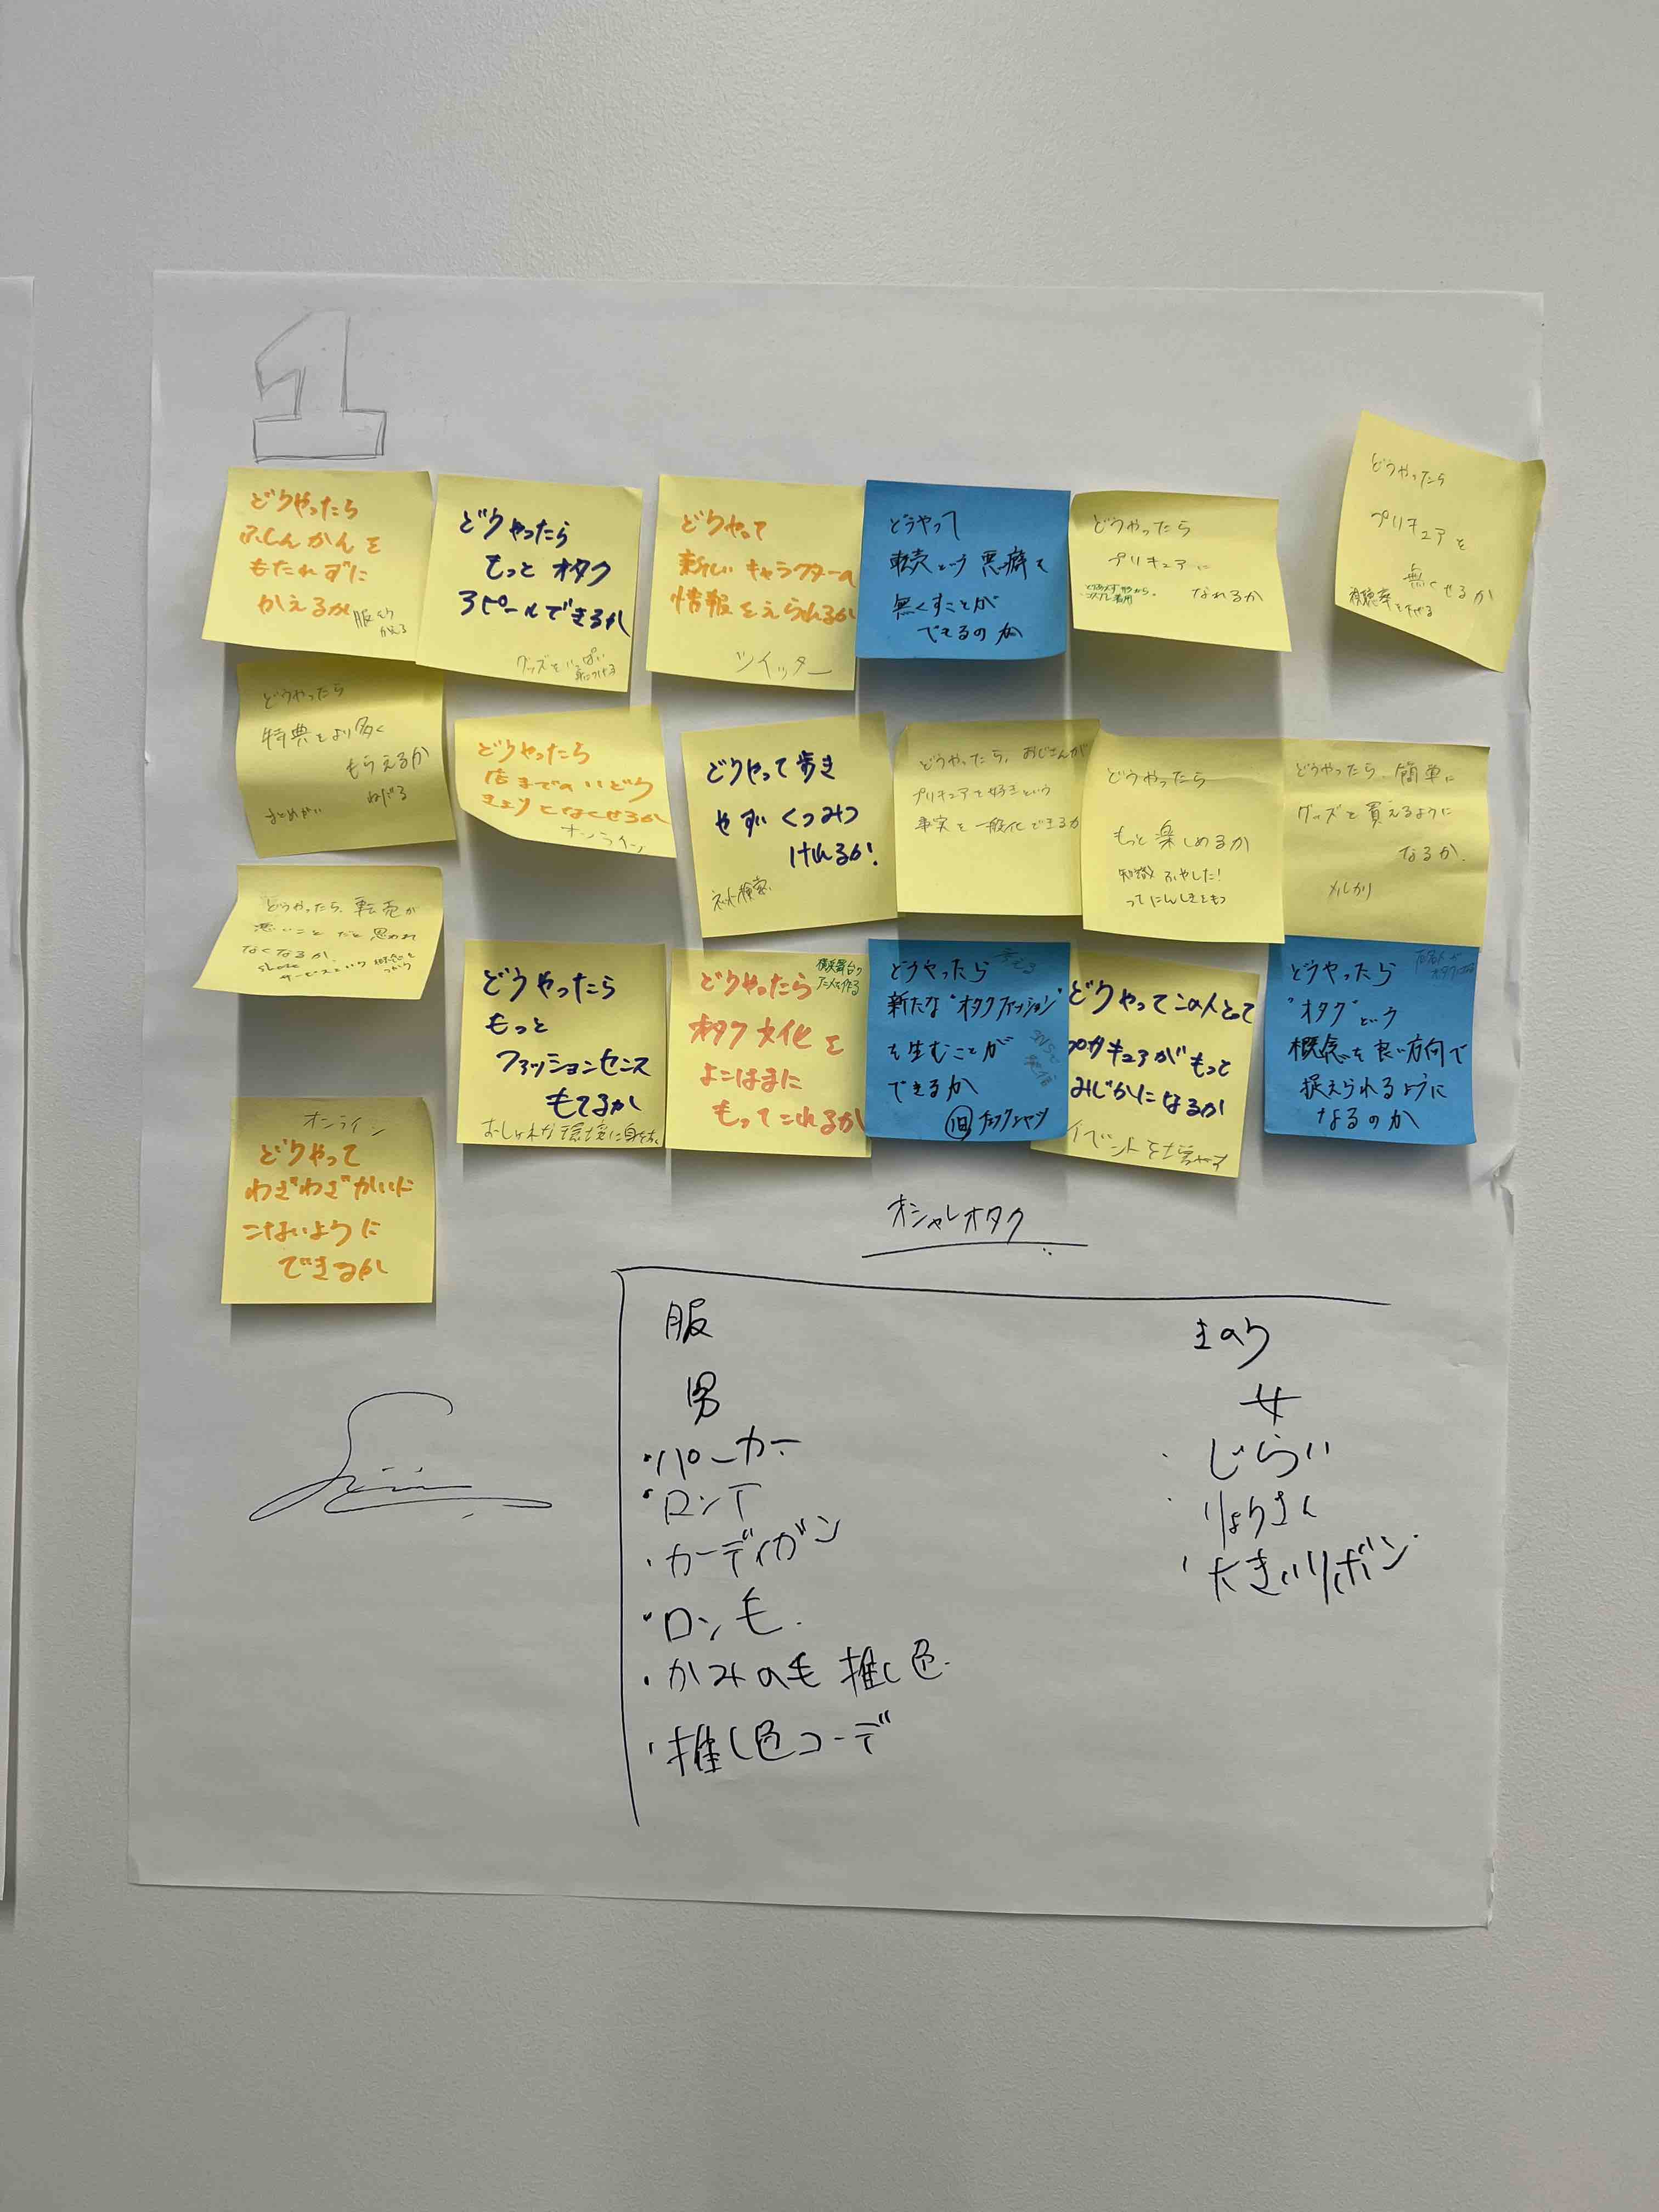 1
どうやったら
ふしんかんを
もたれずに
かえるか
どうやったら
もっと オタク
アピールできるか
グッズをいっぱい
身につける
どうやって
新しい キャラクターの
情報をえられるか
ツイッター
どうやって
転売という 悪癖を
無くすことが
できるのか
どうやったら
プリキュアに
なれるか
どうやったら
プリキュアを
無くせるか
視聴率を下げる
どうやったら
特典をより多く
もらえるか
ねだる
まとめがい
どうやったら
店までのいどう
きょりをなくせるか
オンライン
どうやって歩き
やすい くつみつ
けれるか!
ネット検索
どうやったら、おじさんが
プリキュアを好きという
事実を一般化できるか
どうやったら
もっと楽しめるか
知識 ふやした!
ってにんしきをもつ
どうやったら、簡単に
グッズを買えるように
なるか.
メルカリ
どうやったら、転売が
悪いことだと思われ
なくなるか.
どうやったら
もっと
ファッションセンス
もてるか
おしゃれな環境に身をおく
横浜舞台の
アニメを作る
どうやったら
オタク文化を
よこはまに
もってこれるか
考える
どうやったら
新たな"オタクファッション"
を生むことが
できるか
SNSで
発信
旧 チェックシャツ
どうやってこの人にとって
プリキュアがもっと
みじかになるか
イベントを増やす
どうやったら
"オタク"という
概念を良い方向で
捉えられるように
なるのか
オンライン
どうやって
わざわざかいに
こないように
できるか
オシャレオタク
服
男
・パーカー
・ロンT
・カーディガン
・ロン毛.
・かみの毛 推し色.
・推し色コーデ
きのう
女
・じらい
・りょうさん
・大きいリボン